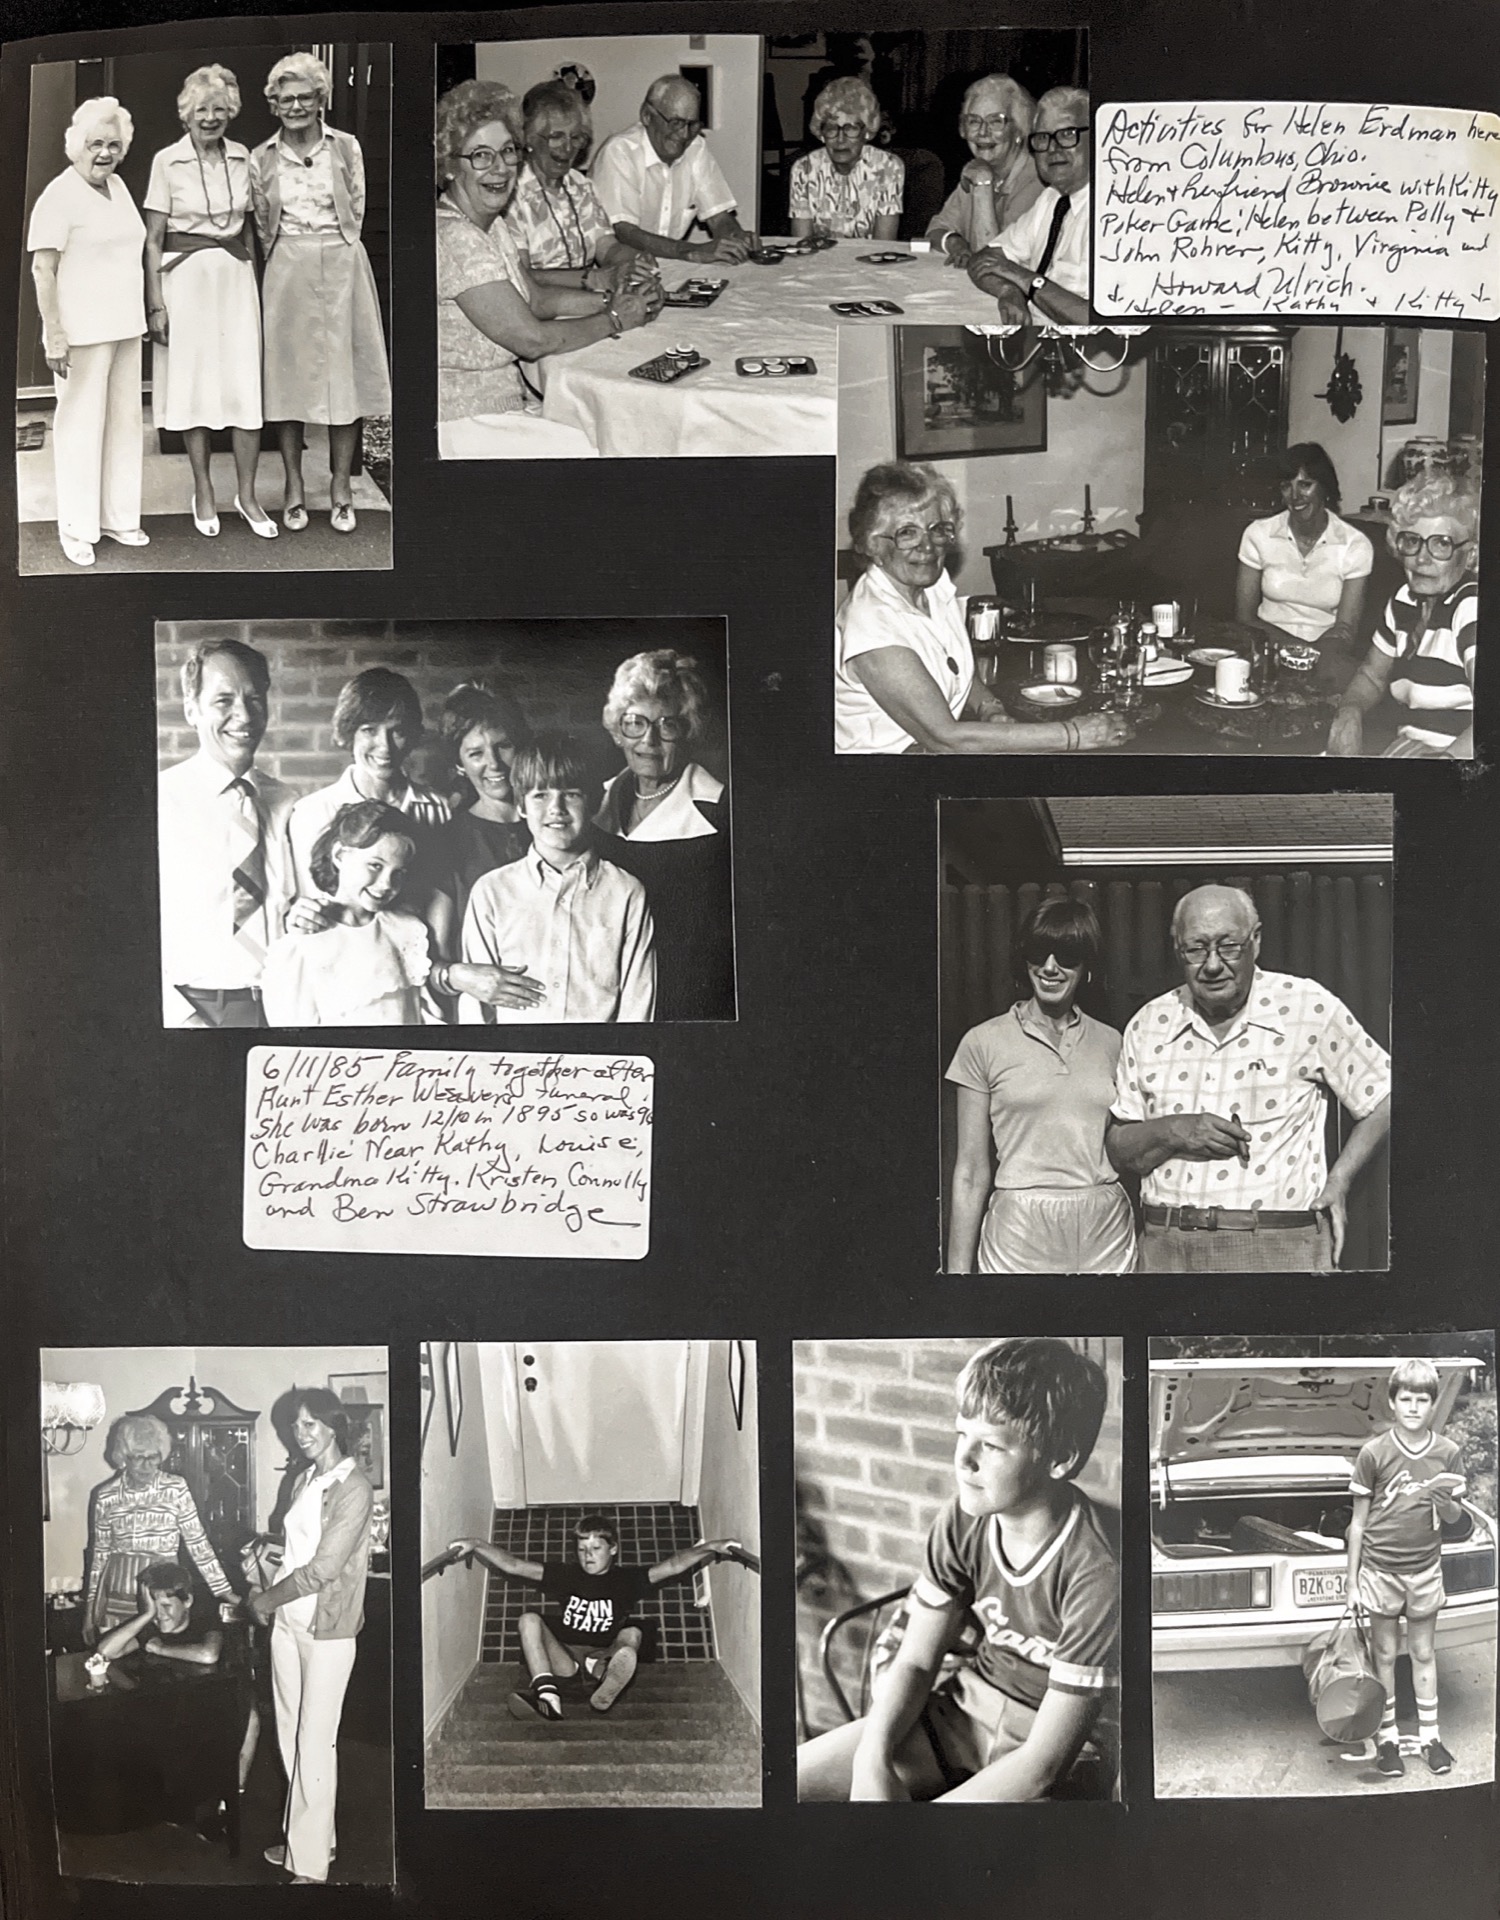 81
Activities for Helen Erdman here
from Columbus, Ohio.
Helen & her friend Brownie with Kitty
Poker Game: Helen between Polly &
John Rohrer, Kitty, Virginia and
Howard Ulrich.
& Helen - Kathy & Kitty &
6/11/85 Family together after
Aunt Esther Weaver's funeral.
She was born 12/10 in 1895 so was 90
Charlie Near Kathy, Louise,
Grandma Kitty. Kristen Connolly
and Ben Strawbridge
PENN
STATE
Giant
PENNSYLVANIA
BZK 36